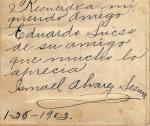 Recuerdra, mi
querido amigo
Eduardo Sucss
de su amigo
que mucho lo
aprecia
Ismael Alvarez
1-26-1913.